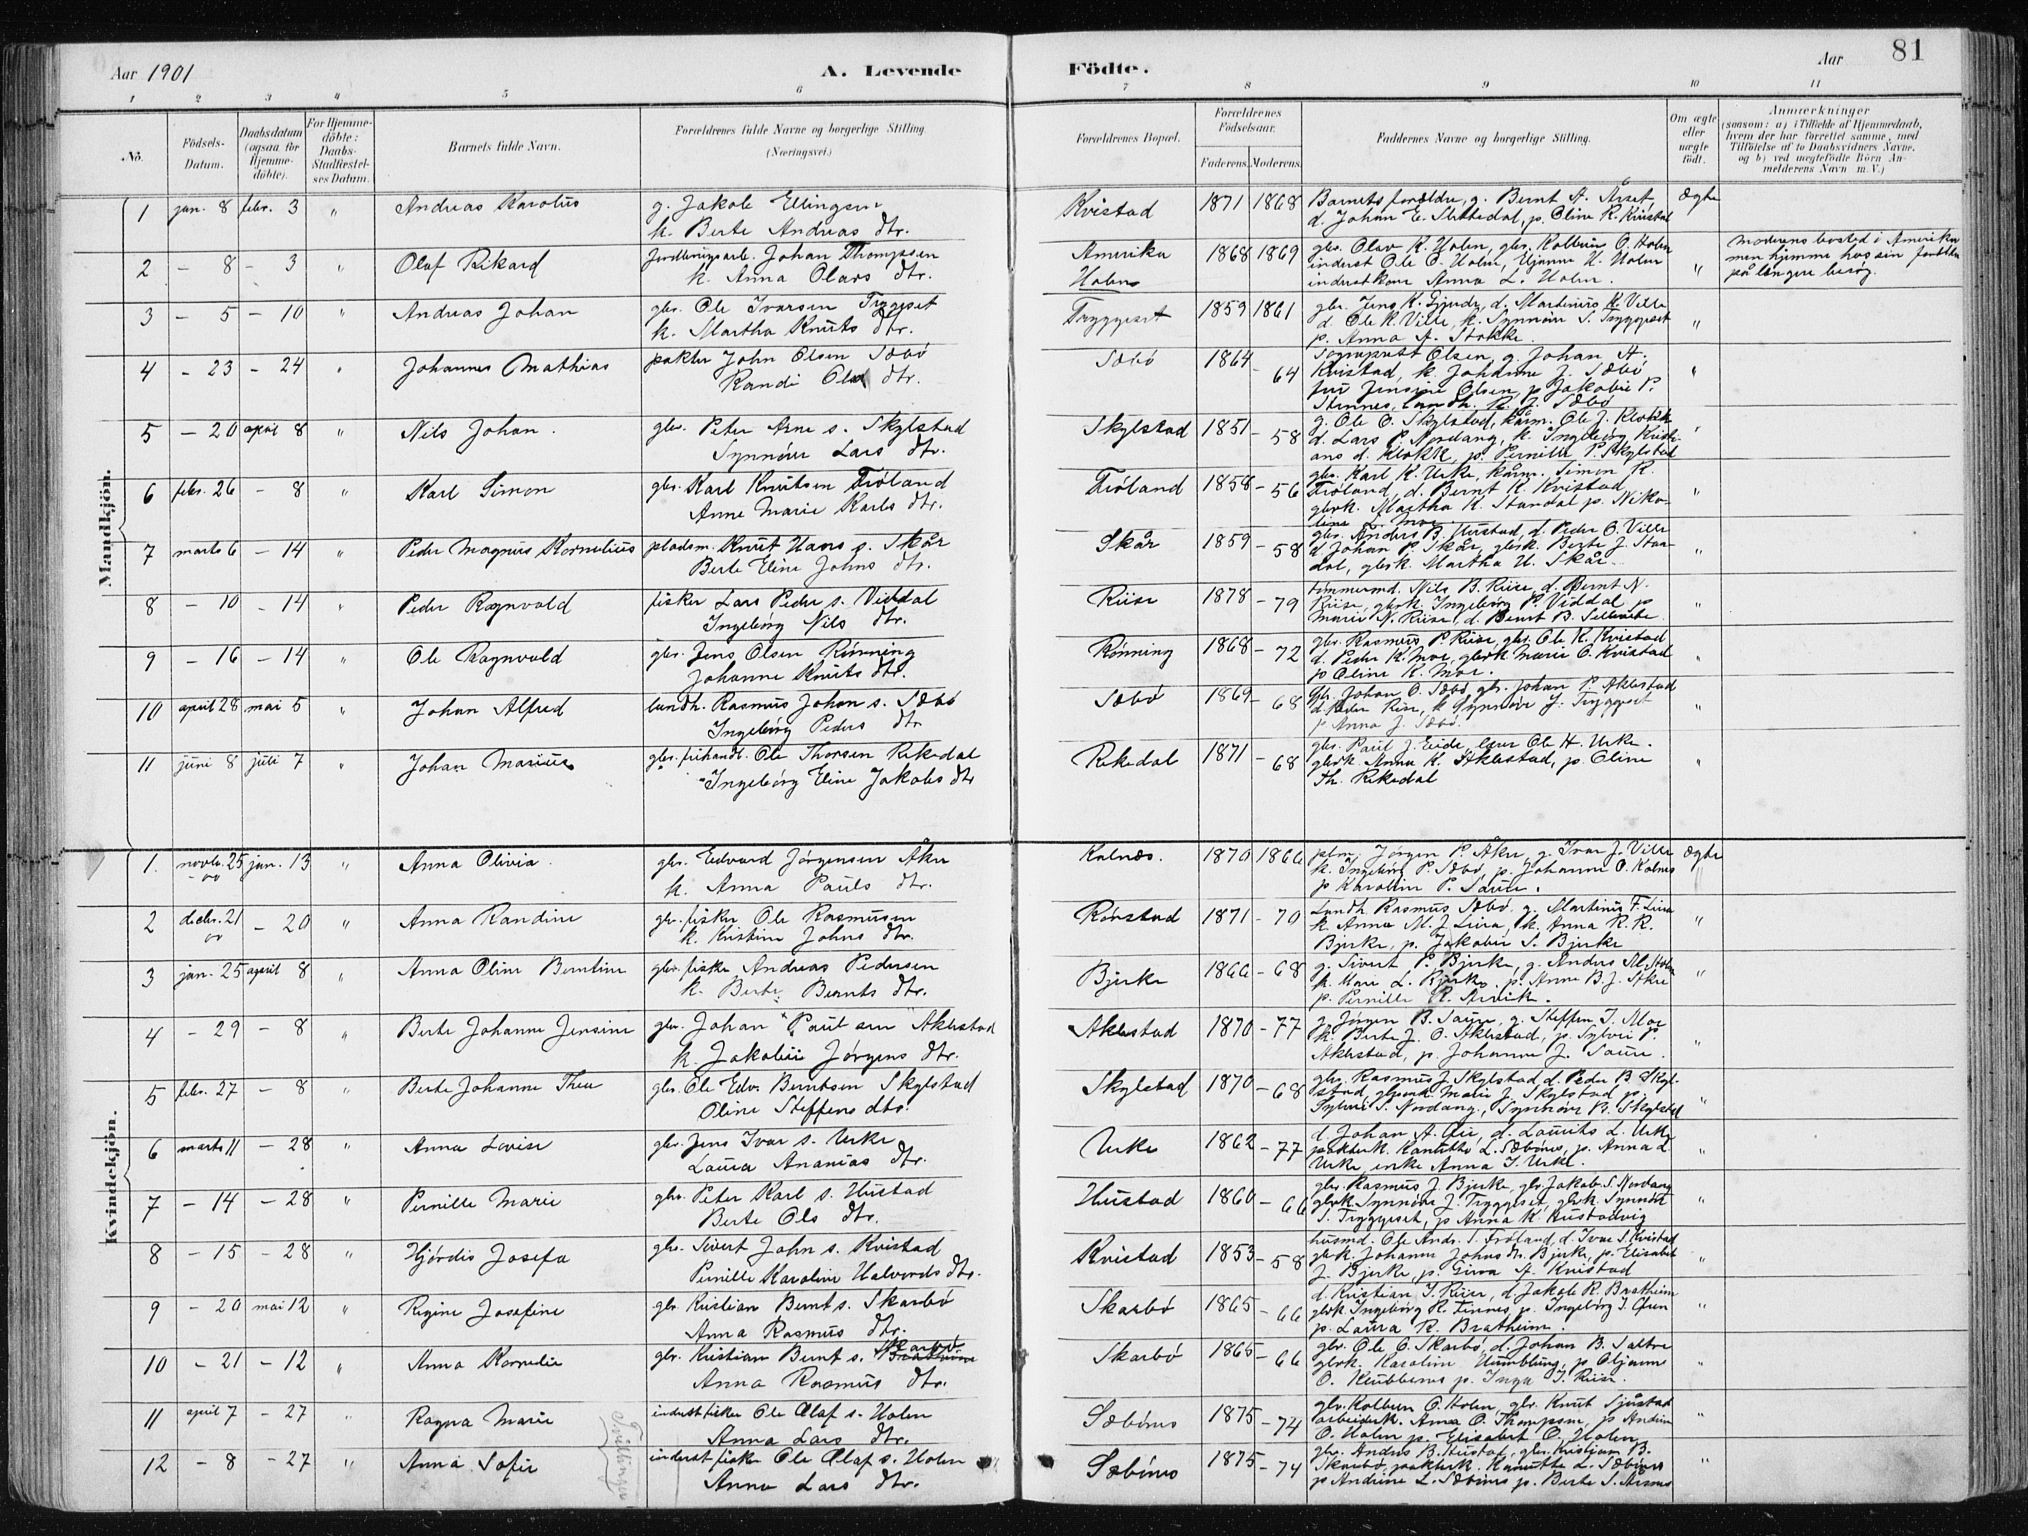 Aar 1901 A. Levende Födte. Aar 81
1 2 3 4 5 6 7 8 9 10 11
No. Födsels-Datum. Daabsdatum (ogsaa for Hjemme-döbte). For Hjemme-döbte: Daabs-Stadfæstel-ses Datum. Barnets fulde Navn. Forældrenes fulde Navne og borgerlige Stilling (Næringsvei.) Forældrenes Bopæl. Forældrenes Födselsaar. Faderens. Moderens. Faddernes Navne og borgerlige Stilling. Om ægte eller uægte födt. Anmærkninger (saasom: a) i Tilfælde af Hjemmedaab, hvem der har forrettet samme, med Tilföielse af to Daabsvidners Navne. og b) ved uægtefödte Börn An-melderens Navn m. V.)
Mandkjön.
1 jan. 8 febr. 3 " Andreas Karolus g. Jakob Ellingsen Kvistad 1871 1868 Barnets forældre, g. Bernt A. Årset, ægte
k. Berte Andreas dtr. d. Johan E. Slettedal, p. Oline K. Kvistad
2 - 8 - 3 " Olaf Rikard Johan Thompsen Amerika 1868 1869 gbr. Olav K. Holen, gbr. Kolbein O. Holen " moderens bosted i Amerika
k. Anna Olavs dtr. Holen inderst Ole O. Holen, men hjemme hos sin
inderstkone Anna L. Holen. på længere besøg.
3 - 5 - 10 " Andreas Johan gbr. Ole Ivarsen Tryggeset Tryggeset 1859 1861 d. Martinus K. Ville "
k. Martha Knuts dtr. d. Ole K. Ville, k. Synnøve S. Tryggeset
p. Anna A. Stokke
4 - 23 - 24 " Johannes Mathias pakter John Olsen Sæbø Sæbø 1864 - 64 Sogneprest Olsen, g. Johan A. "
Randi Ols dtr. Kvistad, k. Johanne J. Sæbø
fru Jensine Olsen, p. Jakobie P.
Stennes, landh. R. J. Sæbø
5 - 20 april 8 " Nils Johan. gbr. Peter Arne s. Skylstad Skylstad 1851 - 58 g. Ole O. Skylstad, kårm. Ole J. Klokk "
Synnøve Lars dtr. d. Lars P. Nordang, k. Ingeborg Kristi-
ans d. Klokk, p. Pernille P. Skylstad
6 febr. 26 - 8 " Karl Simon gbr. Karl Knutsen Frøland Frøland 1858 - 56 gbr. Karl K. Urke, kårm. Simon K. "
Anne Marie Karls dtr. Frøland, d. Bernt K. Kvistad
gbrk. Martha K. Standal p. Niko-
line L. Moe
7 marts 6 - 14 " Peder Magnus Kornelius pladsm. Knut Hans s. Skår Skår 1859 - 58 gbr. Anders B. Hustad, d. Peder O. Ville "
Berte Eline Johns dtr. d. Johan P. Skår, gbrk. Berte J. Stan-
dal, gbrk. Martha H. Skår.
8 - 10 - 14 " Peder Ragnvald fisker Lars Peder s. Viddal Riise 1878 - 79 tømmermd. Nils B. Riise, d. Bernt N. "
Ingeborg Nils dtr. Riise, gbrk. Ingeborg P. Viddal, p.
Marie N. Riise, d. Bernt B.
9 - 16 - 14 " Ole Ragnvald gbr. Jens Olsen Rønning Rønning 1868 - 72 gbr. Rasmus P. Riise, gbr. Ole K. Kvistad "
Johanne Knuts dtr. d. Peder K. Moe, gbrk. Marie O. Kvistad
p. Oline K. Moe.
10 april 28 mai 5 " Johan Alfred landh. Rasmus Johan s. Sæbø Sæbø 1869 - 68 gbr. Johan O. Sæbø, gbr. Johan P. Aklestad "
Ingeborg Peders dtr d. Peder Riise, k. Synnøve J. Tryggeset
p. Anna J. Sæbø
11 juni 8 juli 7 " Johan Marius gbr. Ole Thorsen Rekedal Rekedal 1871 - 68 gbr. Paul J. Eide, lærer Ole H. Urke. "
Ingeborg Eline Jakobs dtr gbrk. Anna K. Aklestad, p. Oline
Th. Rekedal
Kvindekjön.
1. novbr. 25 jan. 13 " Anna Olivia. gbr. Edvard Jørgensen Aker Kalnæs. 1870 1866 Jørgen P. Aker, g. Ivar J. Ville ægte
00 k. Anna Pauls dtr. k. Ingeborg P. Sæbø, p. Johanne O. Kalnes
p. Karoline P. Saure.
2 decbr. 21 - 20 " Anna Randine gbr. fisker Ole Rasmusen Rørstad 1871 - 70 Landh. Rasmus Sæbø, g. Martinus F. Lien "
00 k. Kristine Johns dtr. k. Anne M. J. Lien, k. Anna R. R.
Bjerke, p. Jakobie S. Bjerke
3 jan. 25 april 8 " Anna Oline Berntine gbr. fisker Andreas Pedersen Bjerke 1866 - 68 g. Sivert P. Bjerke, g. Anders "
k. Berte Bernts dtr. k. L. Bjerke, p. Anne B. J. Aker
p. Pernille R.
4 - 29 - 8 " Berte Johanne Jensine gbr. Johan Paulsen Aklestad Aklestad 1870 - 77 g. Jørgen B. Saure, g. Steffen J. Moe "
k. Jakobie Jørgens dtr. k. Berte J. O. Aklestad, p. Sylvie P.
Aklestad, p. Johanne J. Saure.
5 febr. 27 - 8 " Berte Johanne Thea gbr. Ole Edv. Berntsen Skylstad Skylstad 1870 - 68 gbr. Rasmus J. Skylstad, d. Peder B. Skyl- "
Oline Steffens dtr. stad, Marie J. Skylstad p.
Sylvie S. Nordang, Synnøve R. Skylstad
6 marts 11 - 28 " Anna Lovise gbr. Jens Ivar s. Urke Urke 1862 - 77 d. Johan A. d. Laurits L. Urke "
Laura Ananias dtr. pakterk. Kanutte L. Sæbønes, p. Anna L.
Urke, enke Anna J. Urke.
7 - 14 - 28 " Pernille Marie gbr. Peter Karl s. Hustad Hustad 1860 - 66 gbr. Rasmus J. Bjerke, gbr. Jakob S. Nordang "
Berte Ols dtr. gbrk. Synnøve J. Tryggeset, gbrk. Synnøve
S. Tryggeset, p. Anna K. Hustadvig
8 - 15 - 28 " Hjørdis Josefa gbr. Sivert John s. Kvistad Kvistad 1853 - 58 husmd. Ole Andr. S. Frøland, d. Ivar S. Kvistad "
Pernille Karoline Halvords dtr. gbrk. Johanne Johns dtr. Bjerke, p. Elisabet
J. Bjerke, p. Gina A. Kvistad
9 - 20 mai 12 " Regine Josefine gbr. Kristian Bernt s. Skarbø Skarbø 1865 - 66 d. Kristian J. Riise, d. Jakob R. Bratheim "
Anna Rasmus dtr. gbrk. Ingeborg R. Finnes, p. Ingeborg J.
p. Laura R. Bratheim.
10 - 21 - 12 " Anna Kornelie gbr. Kristian Bernt s. Skarbø Skarbø 1865 - 66 gbr. Ole O. Skarbø, d. Johan B. Sætre "
Anna Rasmus dtr. gbrk. Karoline
p. Inga J. Riise.
11 april 7 - 27 " Ragna Marie inderst fisker Ole Olaf s. Holen Sæbønes 1875 - 74 gbr. Kolbein O. Holen, gbr. Knut Sjåstad "
Anna Lars dtr. arbeiderk. Anna O. Thompson, p. Andrine
O. Holen p. Elisabet O. Holen
Tvillinger
12 - 8 - 27 " Anna Sofie inderst fisker Ole Olaf s. Holen Sæbønes 1875 - 74 gbr. Anders B. Hustad, gbr. Kristian B. "
Anna Lars dtr. Skarbø, pakterk. Kanutte L. Sæbønes
p. Andrine L. Sæbønes p. Berte S.